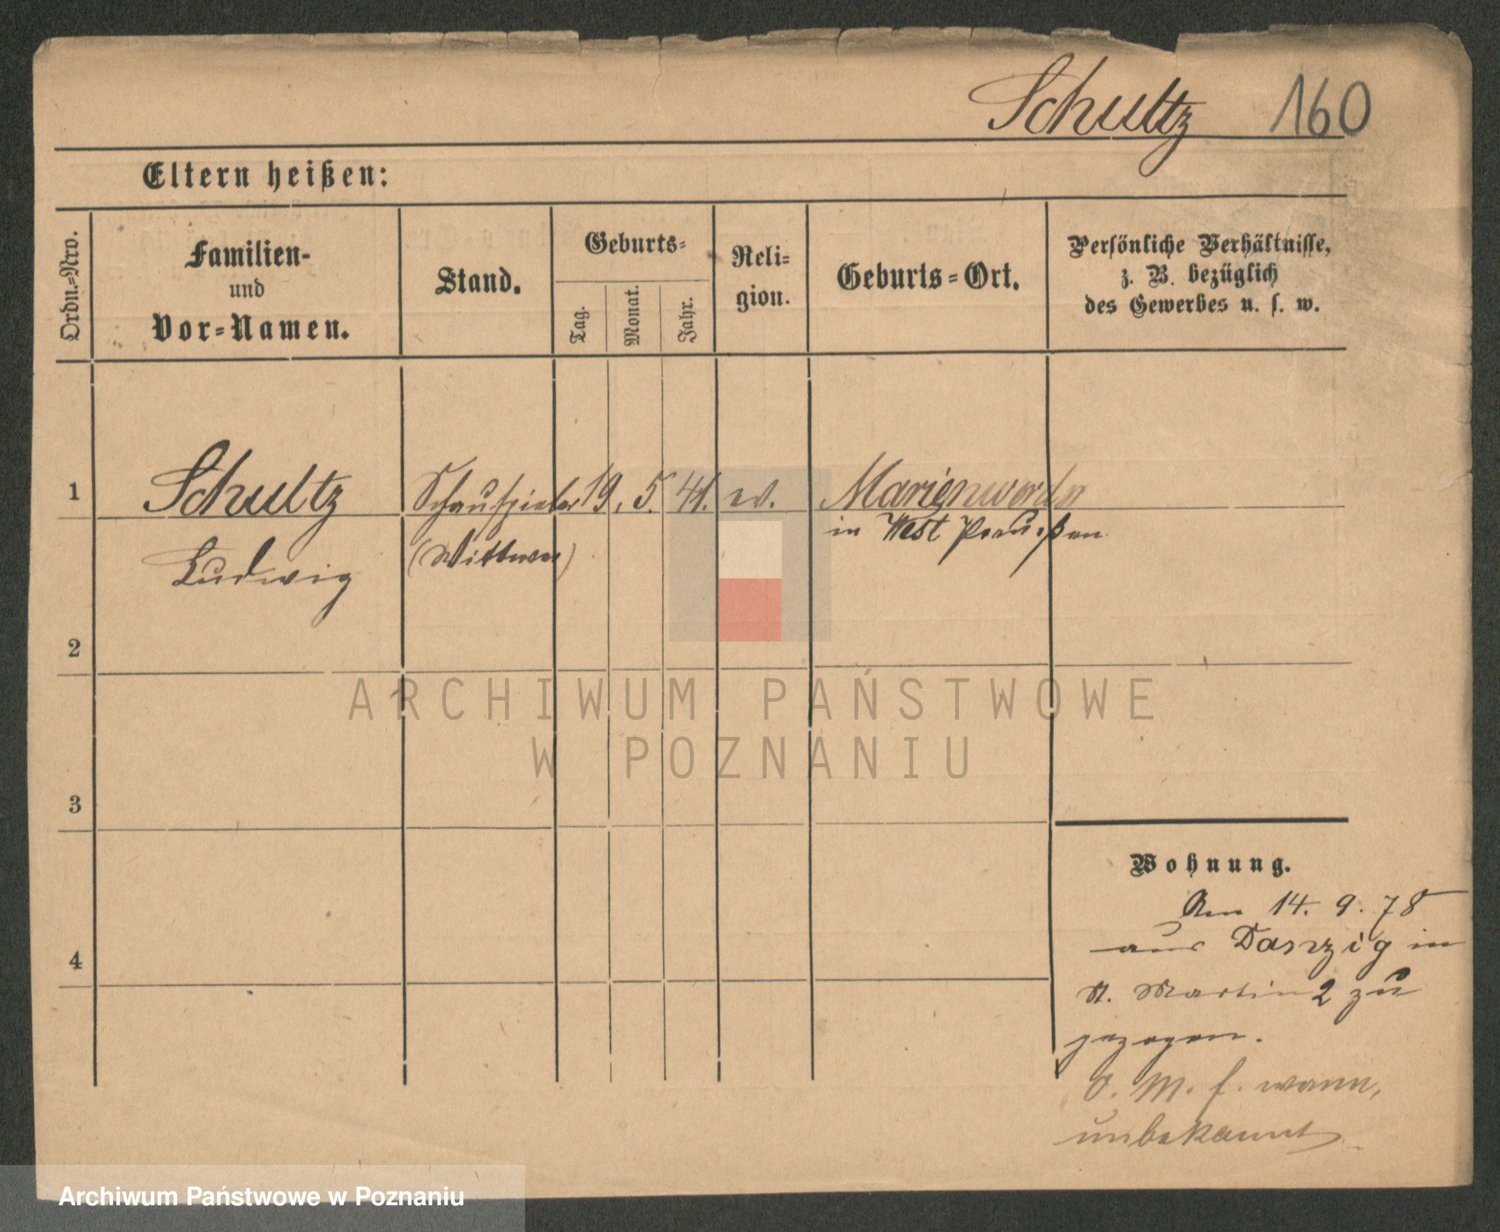 Schultz 160
Eltern heißen:
Ordn.-Nro.
Familien-
und
Vor-Namen.
Stand.
Geburts-
Tag.
Monat.
Jahr.
Reli-
gion.
Geburts-Ort.
Persönliche Verhältnisse,
z. B. bezüglich
des Gewerbes u. s. w.
1 Schultz Schauspieler 19. 5. 41. ev. Marienwerder
Ludwig (Wittwer) in West Preußen
2
3
4
Wohnung.
Am 14. 9. 78
aus Danzig in
St. Martin 2 zu
gezogen.
O. M. f. wann,
unbekannt
ARCHIWUM PAŃSTWOWE
W POZNANIU
Archiwum Państwowe w Poznaniu